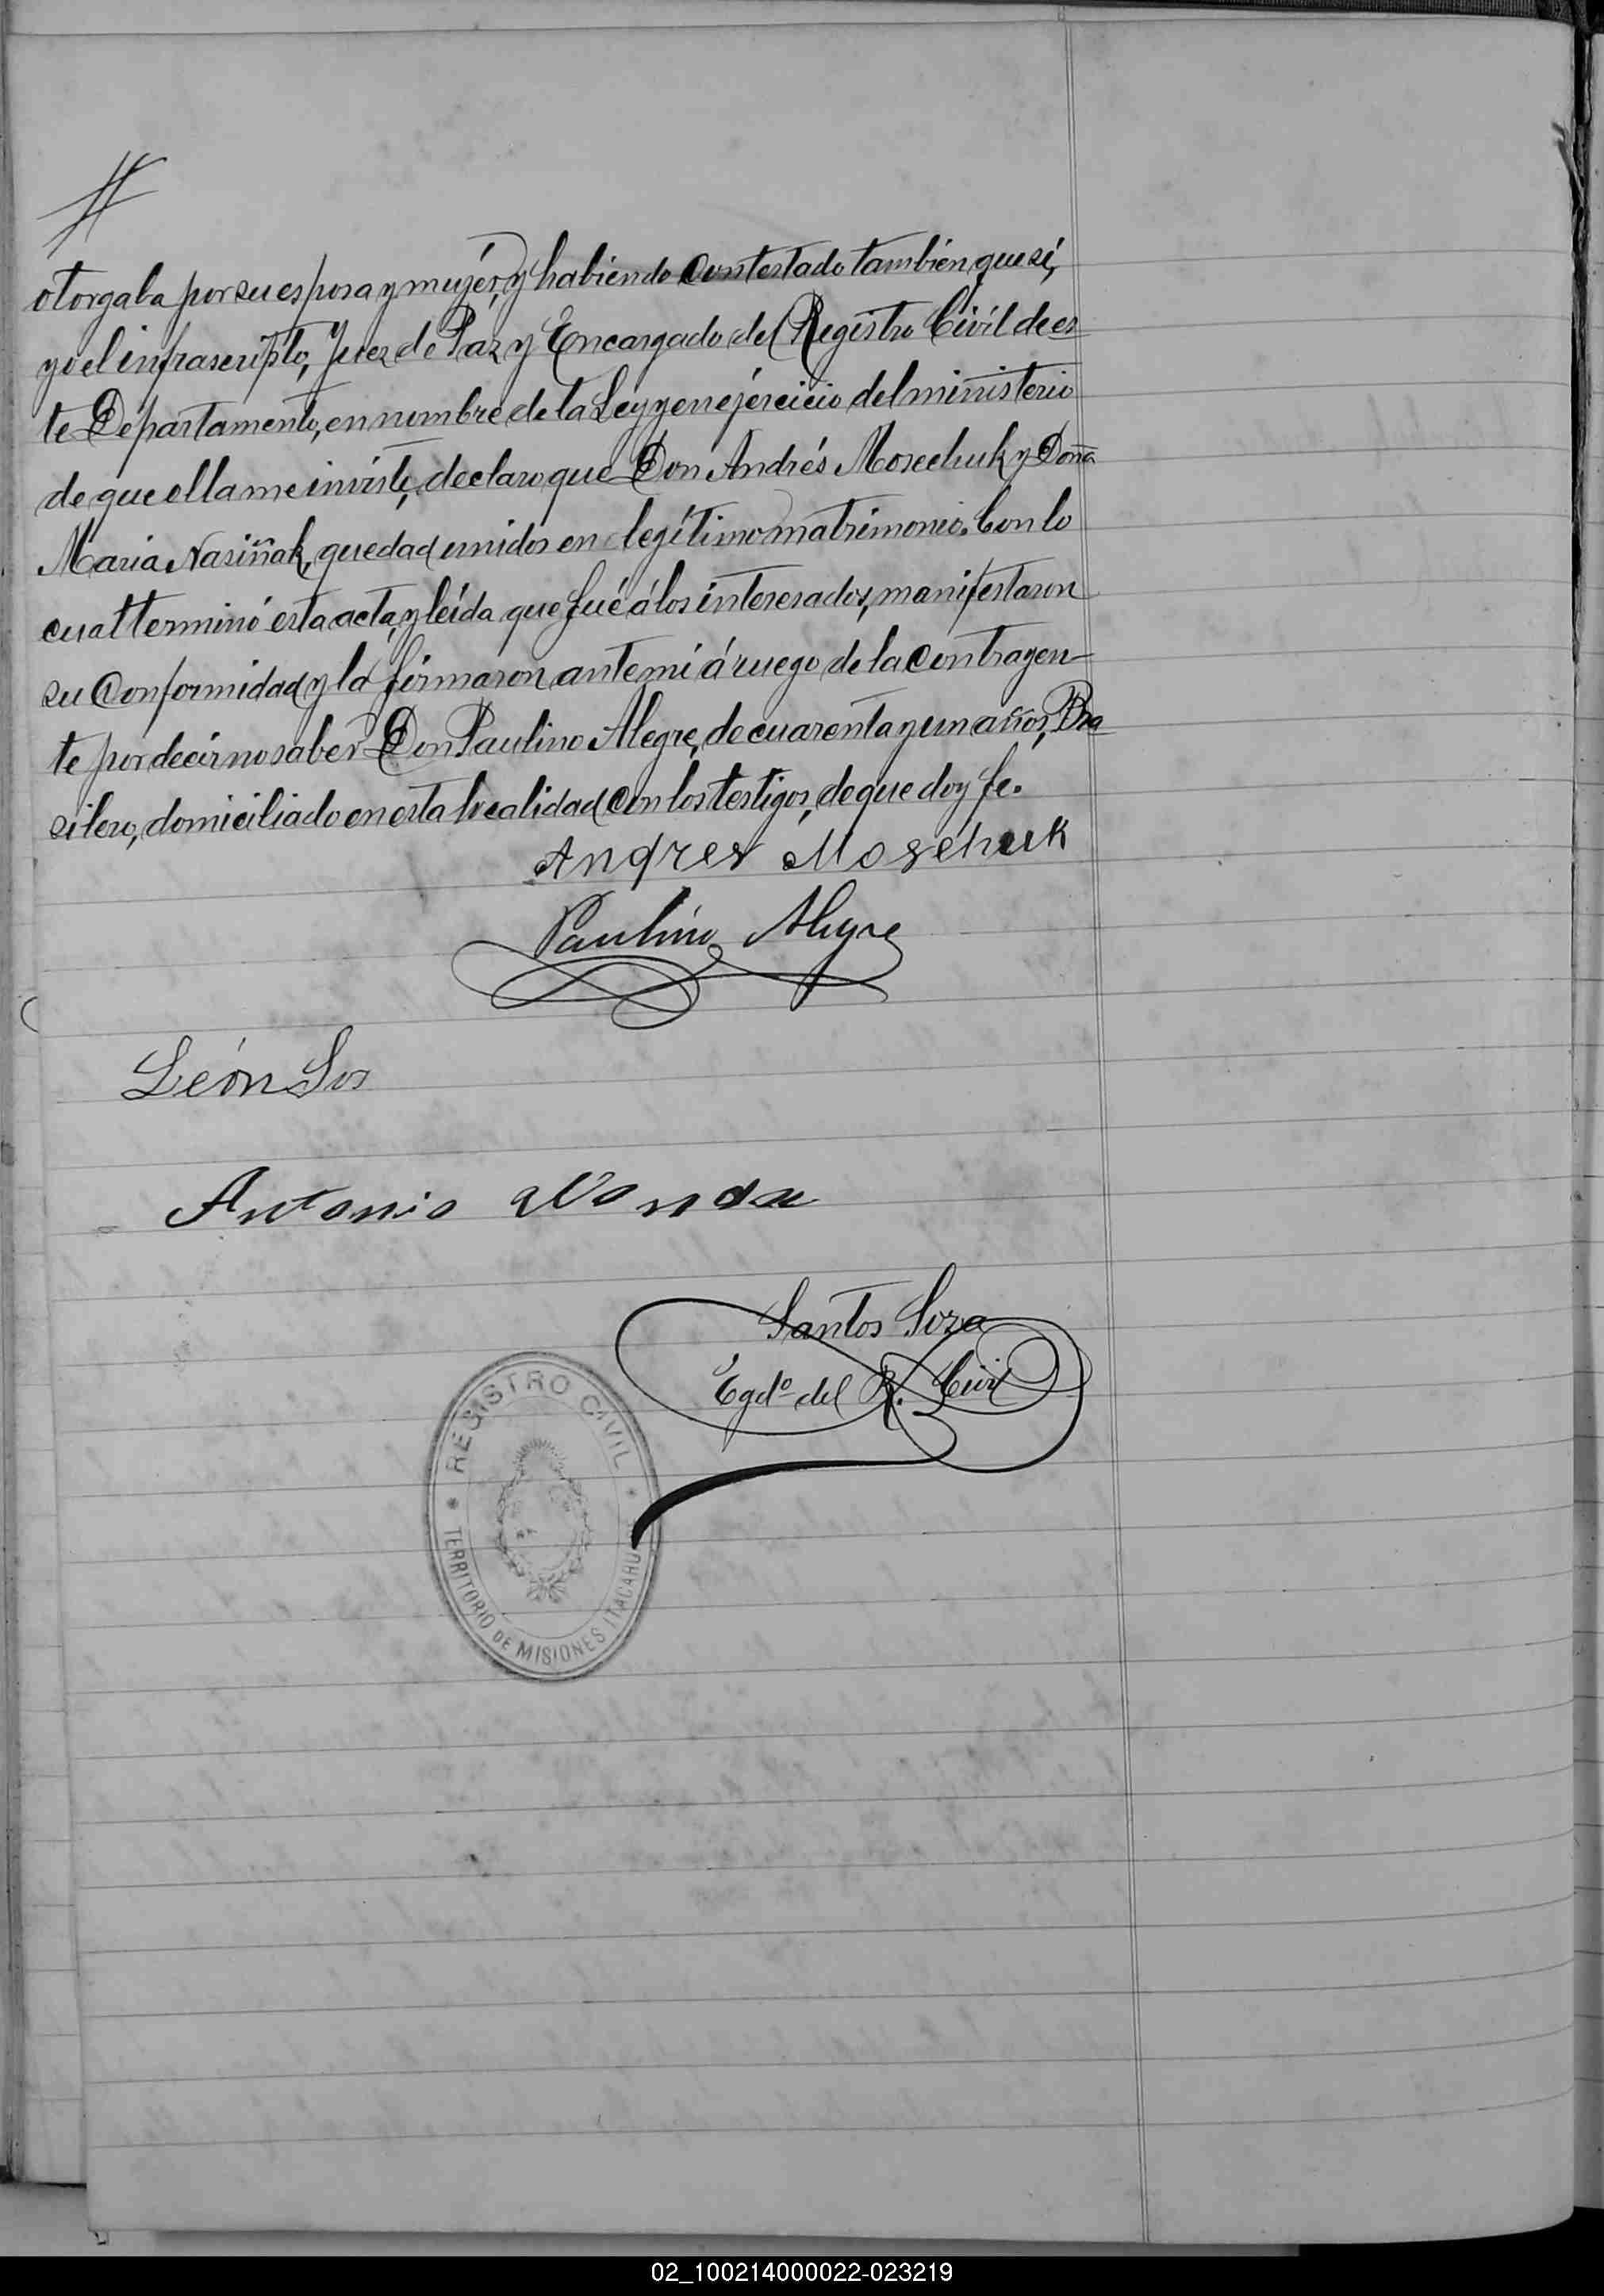 otorgaba por su esposa y mujér, y habiendo contestado también que sí,
yo el infrascripto, Juez de Paz y Encargado del Registro Civíl de es
te Départamento, en nombre de la Ley y en ejércicio del ministerio
de que ella me inviste, declaro que Don Andrés Mosechuk y Doña
Maria Nasiñak, quedad unidos en legítimo matrimonio. Con lo
cual terminó esta acta, y leída que fué á los interesados, manifestaron
su conformidad y la firmaron ante mí á ruego de la contrayen-
te por decir no saber Don Paulino Alegre, de cuarenta y un años, Bra
silero, domiciliado en esta localidad con los testigos, de que doy fe.
Andres Mosehuk
Paulino Alegre
León Sos
Antonio Wonda
Santos Soza
Egdo. del R. Civil
REGISTRO CIVIL
TERRITORIO DE MISIONES ITACARU
02_100214000022-023219